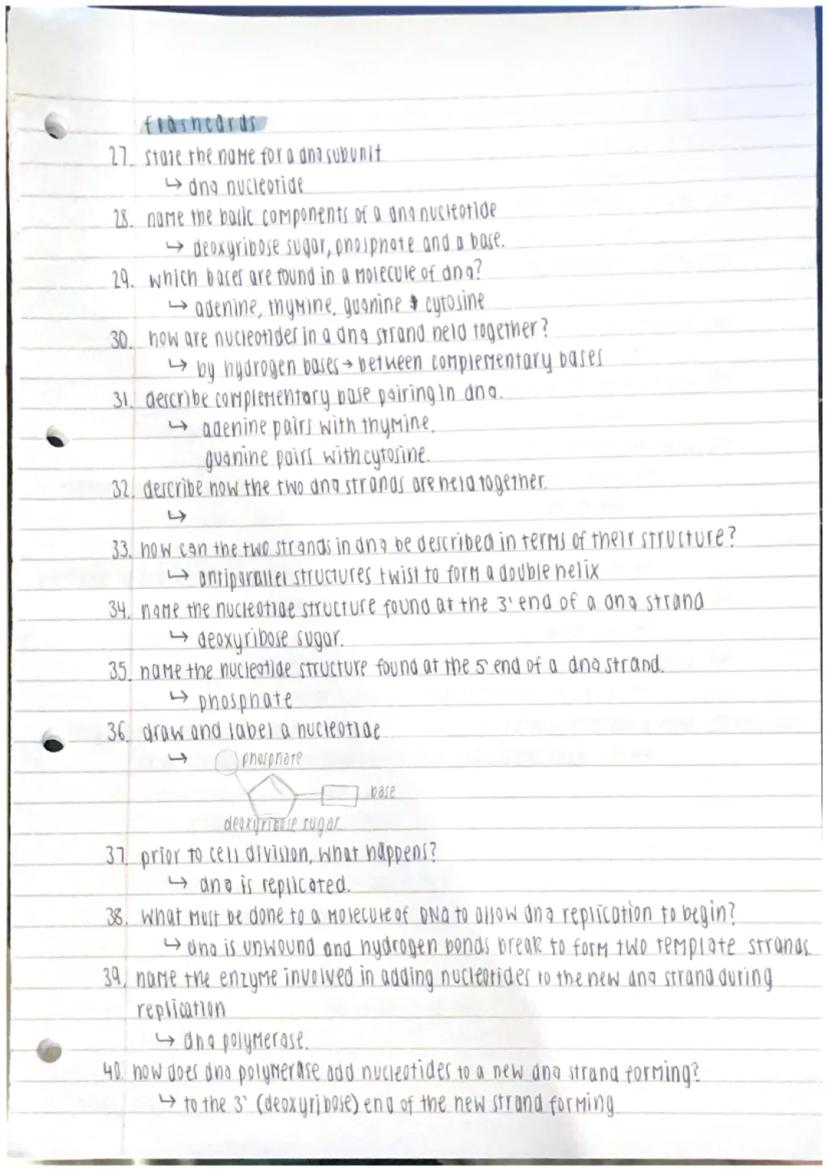 flashcards
27. state the name for a dna subunit
↳ dna nucleotide
28. name the basic components of a dna nucleotide
↳ deoxyribose sugar, phosphate and a base.
29. which bases are found in a molecule of dna?
↳ adenine, thymine, guanine & cytosine
30. how are nucleotides in a dna strand held together?
↳ by hydrogen bases → between complementary bases
31. describe complementary base pairing in dna.
↳ adenine pairs with thymine,
guanine pairs with cytosine.
32. describe how the two dna strands are held together.
↳
33. how can the two strands in dna be described in terms of their structure?
↳ antiparallel structures twist to form a double helix
34. name the nucleotide structure found at the 3' end of a dna strand
↳ deoxyribose sugar.
35. name the nucleotide structure found at the 5' end of a dna strand.
↳ phosphate
36. draw and label a nucleotide
↳ phosphate
base
deoxyribose sugar
37. prior to cell division, what happens?
↳ dna is replicated.
38. what must be done to a molecule of DNA to allow dna replication to begin?
↳ dna is unwound and hydrogen bonds break to form two template strands
39. name the enzyme involved in adding nucleotides to the new dna strand during
replication
↳ dna polymerase.
40. how does dna polymerase add nucleotides to a new dna strand forming?
↳ to the 3' (deoxyribose) end of the new strand forming